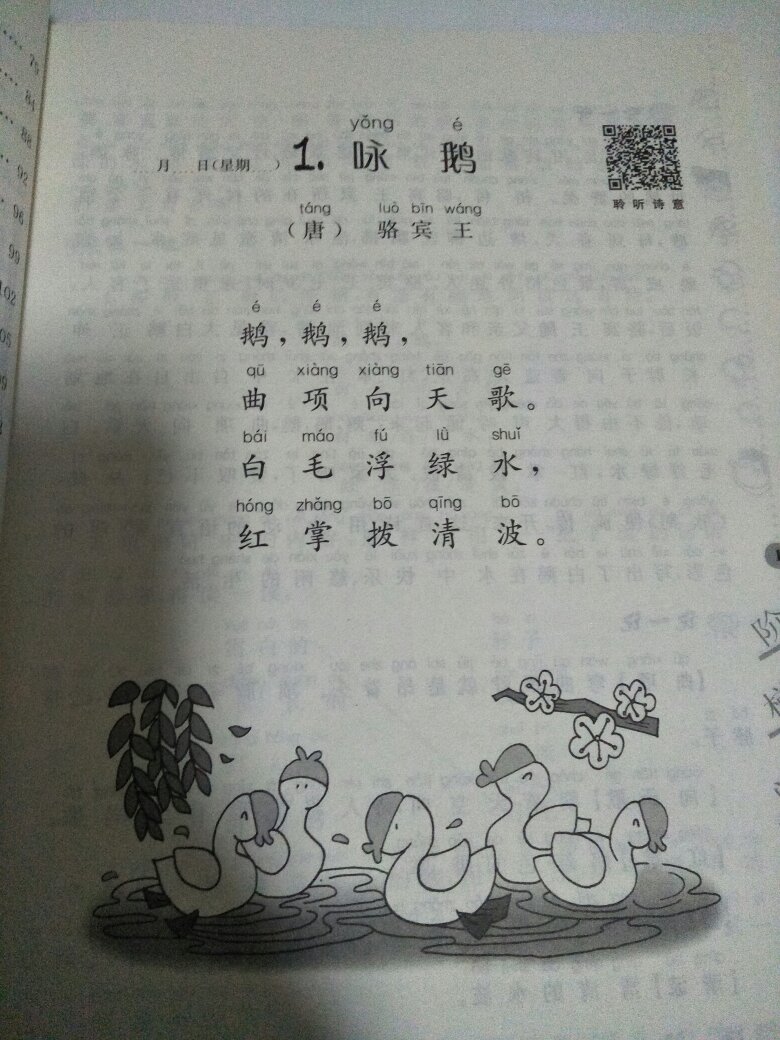 75
84
88
92
96
99
102
yǒng é
月 日(星期 ) 1. 咏 鹅
聆听诗意
táng luò bīn wáng
（唐） 骆宾王
é é é
鹅，鹅，鹅，
qū xiàng xiàng tiān gē
曲项向天歌。
bái máo fú lǜ shuǐ
白毛浮绿水，
hóng zhǎng bō qīng bō
红掌拨清波。
阶